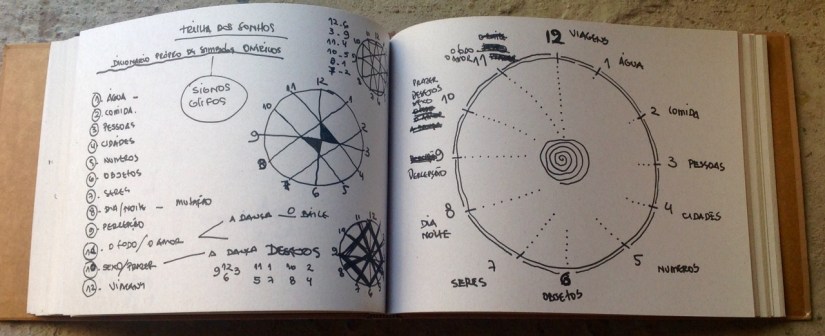 TRILHA DOS SONHOS
DICIONÁRIO PRÓPRIO DE SÍMBOLOS ONÍRICOS
SIGNOS
GLIFOS
1. ÁGUA -
2. COMIDA.
3 PESSOAS
4 CIDADES
5. NUMEROS
6. OBJETOS
7. SERES
8. DIA/NOITE - MUTAÇÃO
9. PERCEPÇÃO
O ÓDIO/O AMOR
A DANÇA - O BAILE
SEXO/PRAZER
A DANÇA DESEJOS
12. VIAGENS
12
9 6 3
11 1 10 2
5 7 8 4
12.6
3-9
11.4
10-5
8-1
7-2
12
1
2
3
4
5
6
7
8
9
10
11
12 VIAGENS
1 ÁGUA
2 COMIDA
3 PESSOAS
4 CIDADES
5 NUMEROS
6 OBJETOS
7 SERES
8 DIA NOITE
9 PERCEPÇÃO
10
PRAZER
DESEJOS
SEXO
11
O ÓDIO
O AMOR